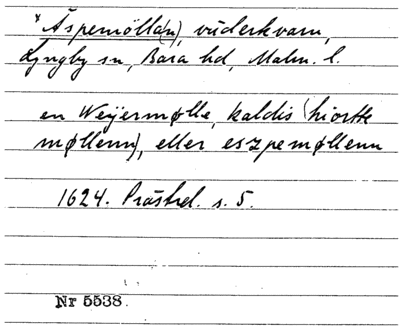 *Äspemölla(n), väderkvarn,
Lyngby sn, Bara hd, Malm. l.
en Weÿermølle, kaldis (hiortte
møllenn), eller eszpemøllenn
1624. Prästrel. s. 5.
Nr 5538.